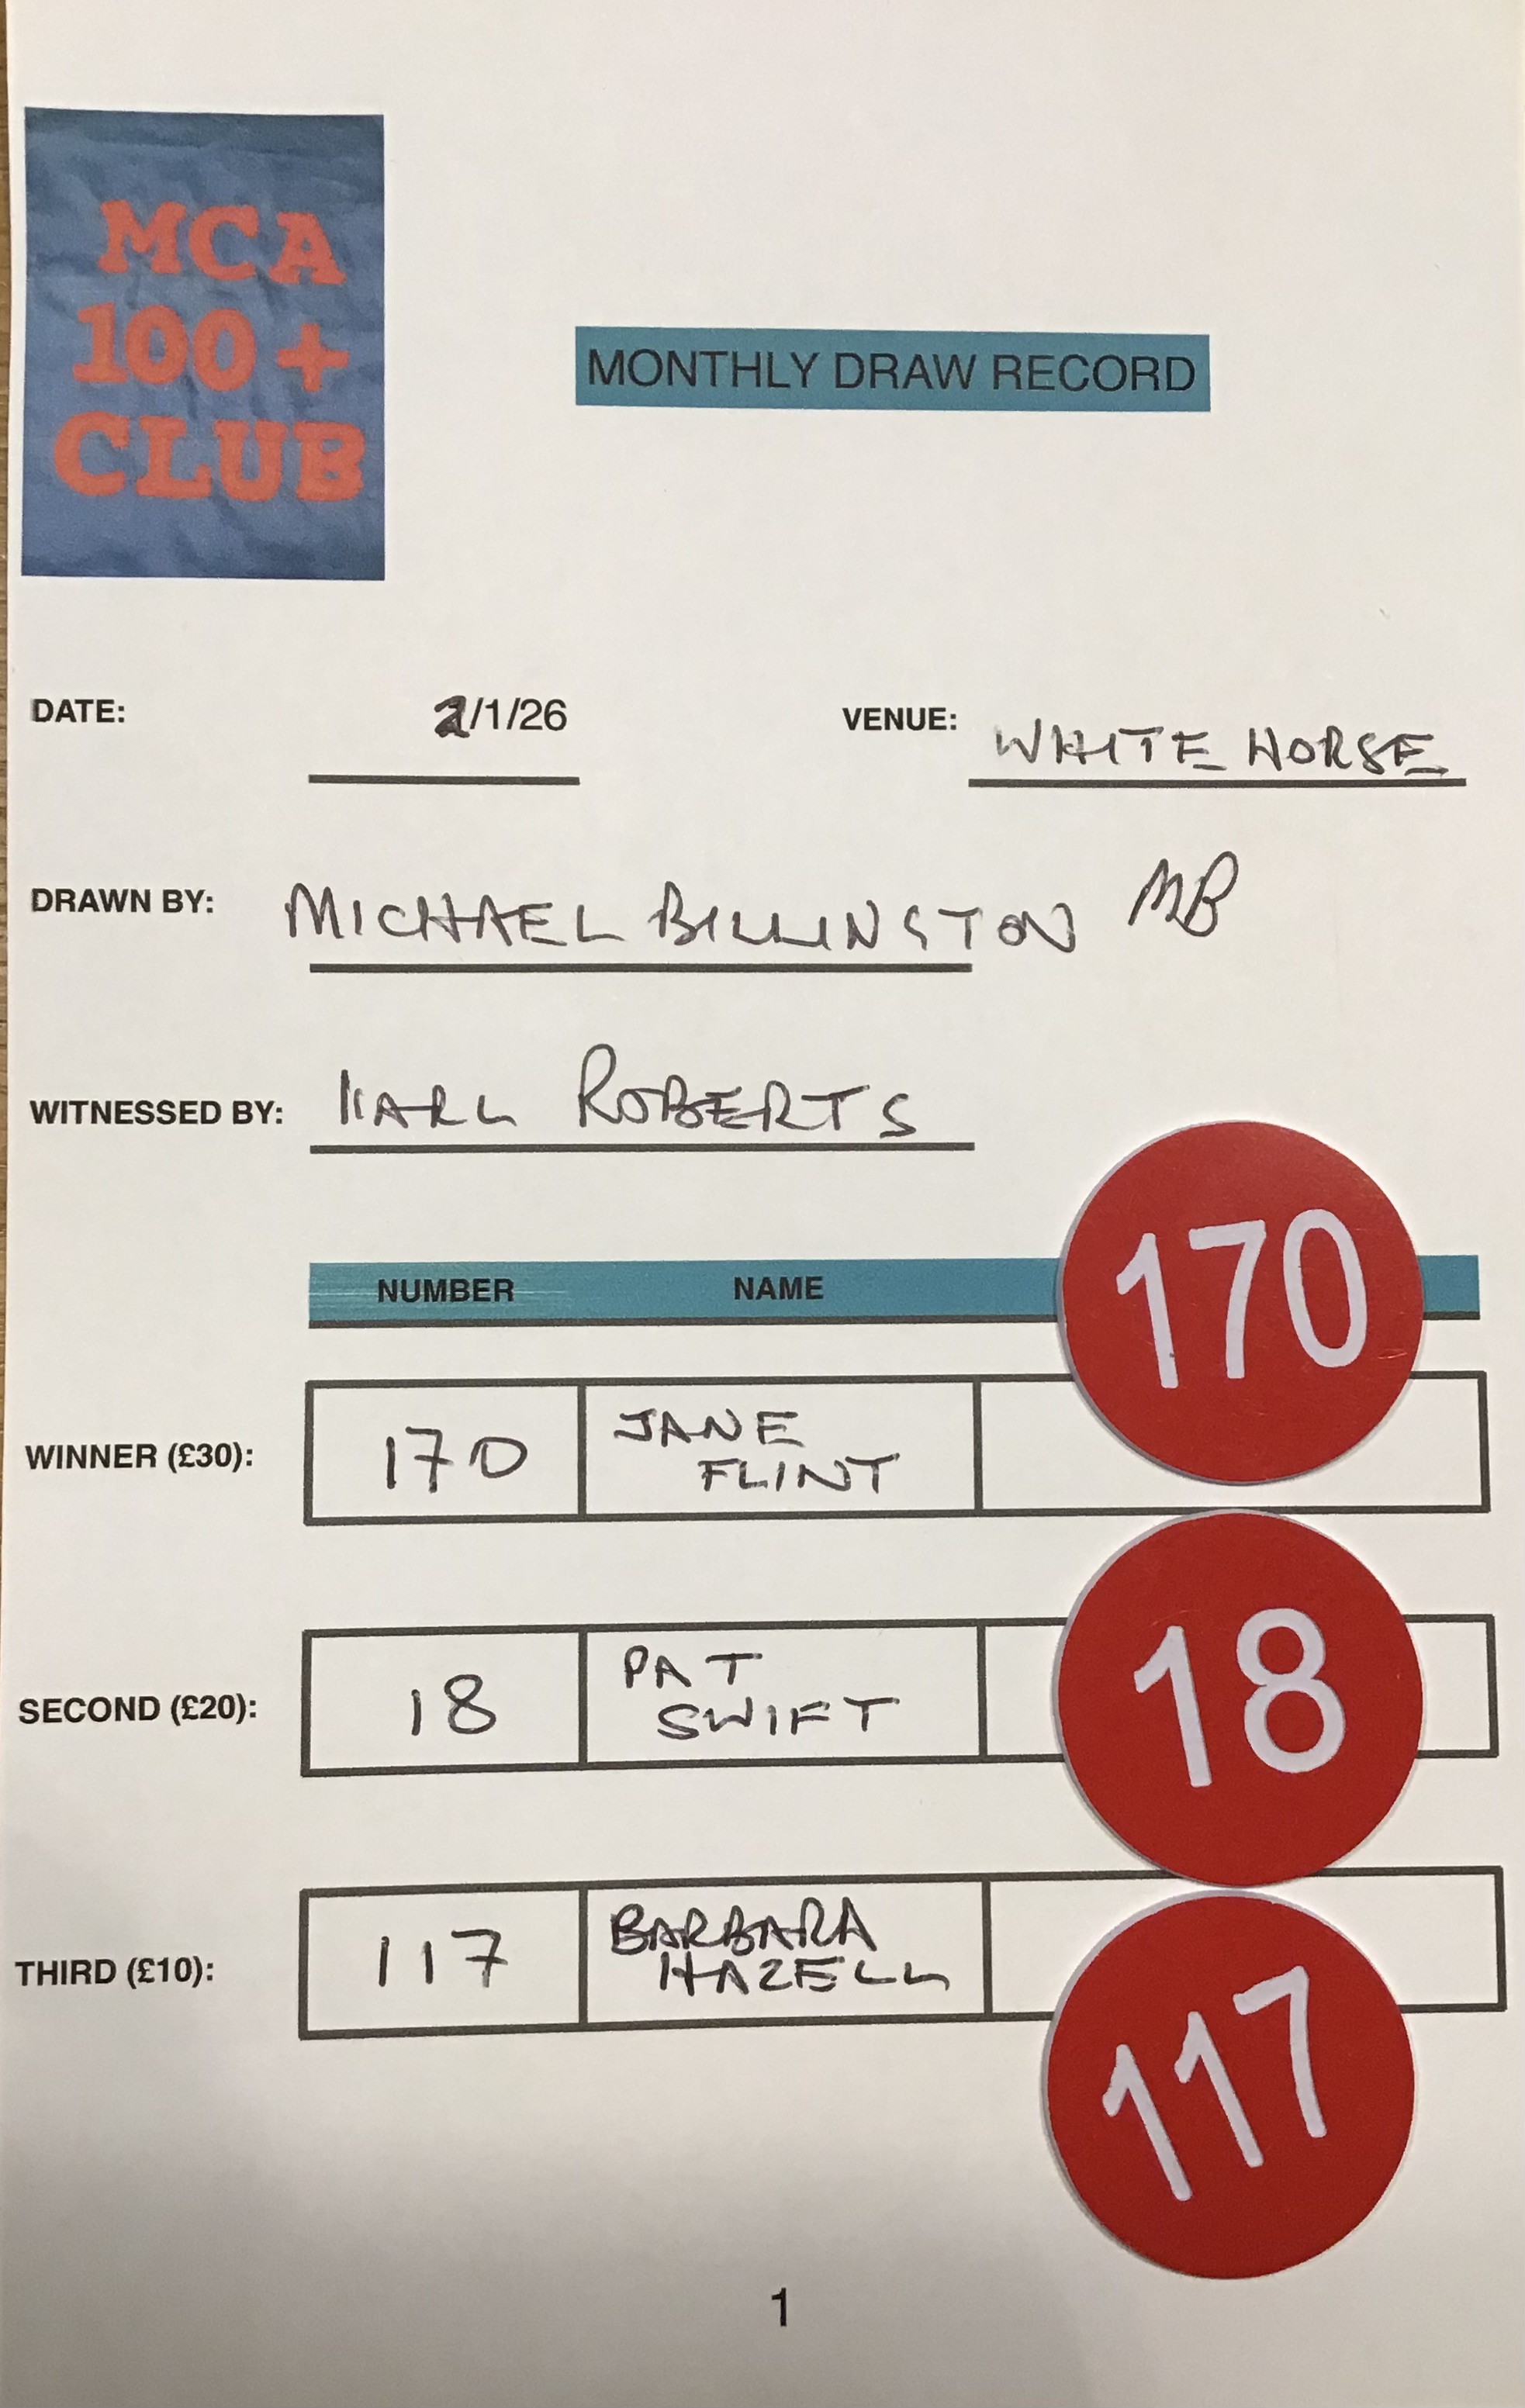 MCA
100+
CLUB
MONTHLY DRAW RECORD
DATE: 2/1/26 VENUE: WHITE HORSE
DRAWN BY: MICHAEL BILLINGTON MB
WITNESSED BY: KARL ROBERTS
NUMBER NAME
170
WINNER (£30): 170 JANE
FLINT
SECOND (£20): 18 PAT
SWIFT
18
THIRD (£10): 117 BARBARA
HAZELL
117
1